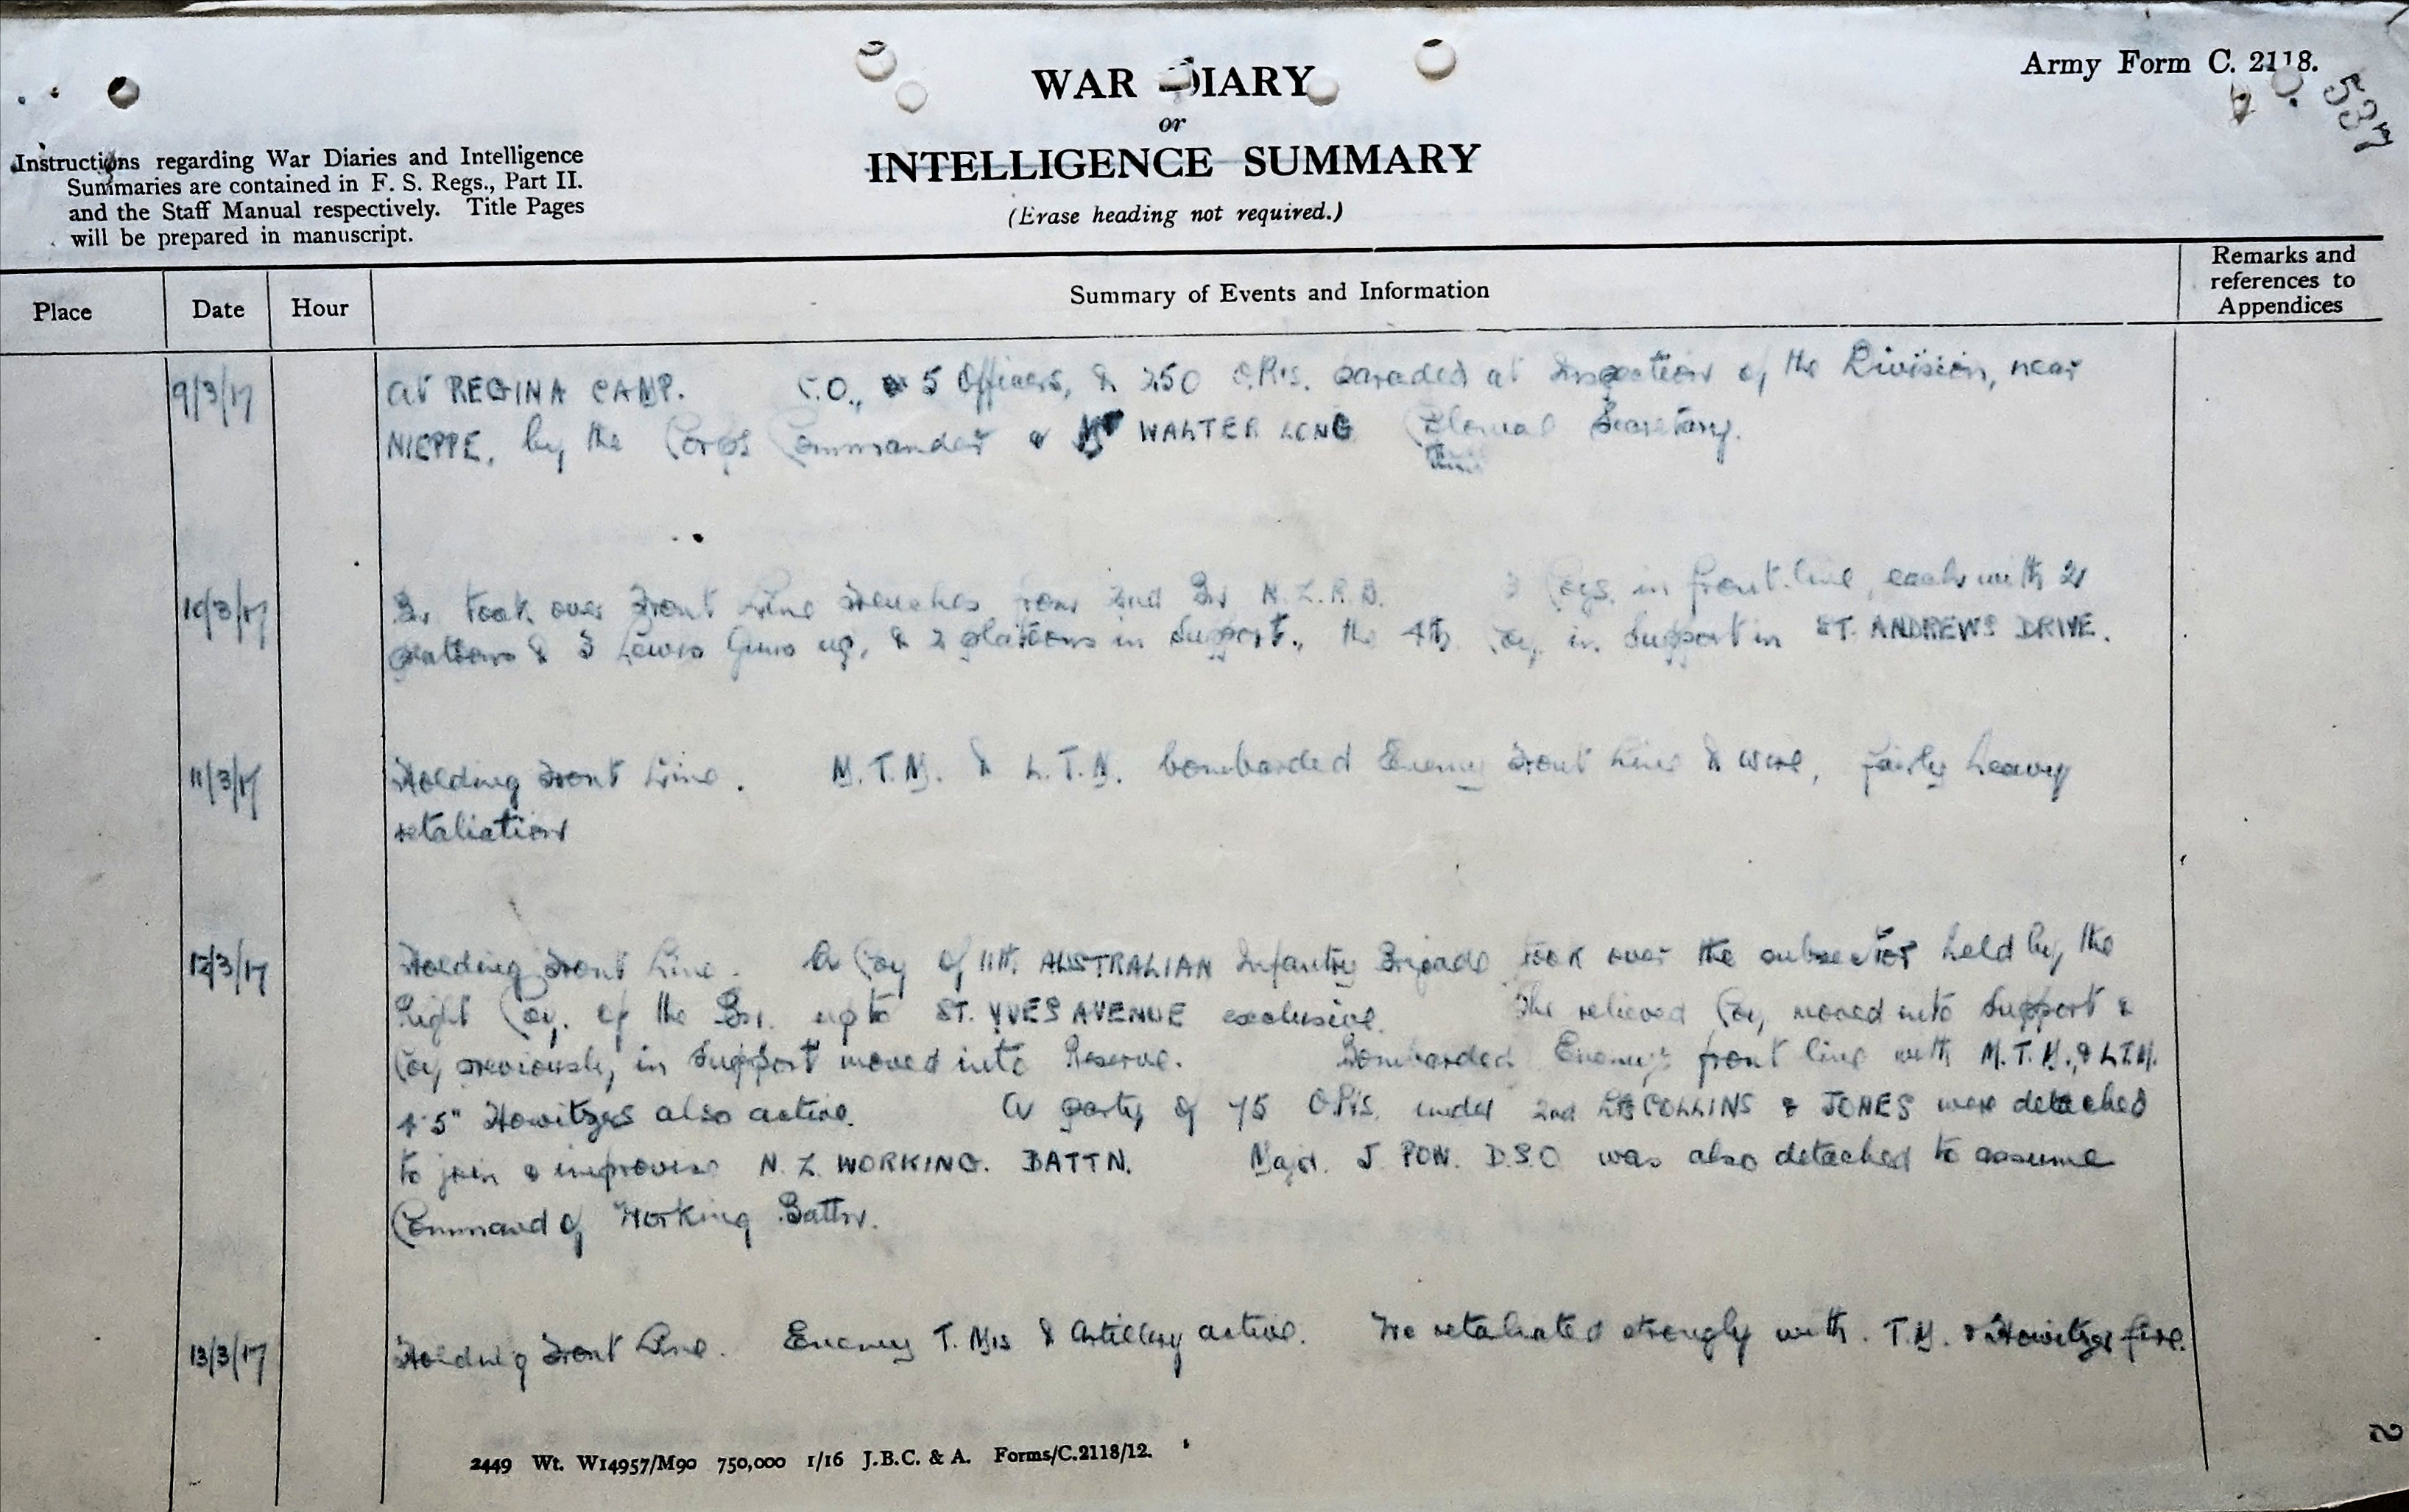 Army Form C. 2118.
537
WAR DIARY
or
INTELLIGENCE SUMMARY
(Erase heading not required.)
Instructions regarding War Diaries and Intelligence
Summaries are contained in F. S. Regs., Part II.
and the Staff Manual respectively. Title Pages
will be prepared in manuscript.
Place Date Hour Summary of Events and Information Remarks and references to Appendices
9/3/17 At REGINA CAMP. C.O., 5 Officers, & 250 O.Rs. paraded at Inspection of the Division, near
NIEPPE, by the Corps Commander & Mr WALTER LONG Colonial Secretary.
10/3/17 Bn took over Front Line Trenches from 2nd Bn N.Z.R.B. 3 Coys. in front line, each with 2
platoons & 3 Lewis Guns up, & 2 platoons in Support., the 4th Coy. in Support in ST. ANDREWS DRIVE.
11/3/17 Holding Front Line. M.T.M. & L.T.M. bombarded Enemy Front Line & wire, fairly heavy
retaliation
12/3/17 Holding Front Line. A Coy of 11th AUSTRALIAN Infantry Brigade took over the subsector held by the
Right Coy. of the Bn. up to ST. YVES AVENUE exclusive. The relieved Coy, moved into Support &
Coy previously in Support moved into Reserve. Bombarded Enemy's front line with M.T.M., & L.T.M.
4.5" Howitzers also active. A party of 75 O.Rs. under 2nd Lts COLLINS & JONES were detached
to join improvise N. Z. WORKING. BATTN. Major. J. POW. D.S.O was also detached to assume
Command of Working Battn.
13/3/17 Holding Front Line. Enemy T. Ms & Artillery active. We retaliated strongly with. T.M. & Howitzer fire.
2449 Wt. W14957/M90 750,000 1/16 J.B.C. & A. Forms/C.2118/12.
2